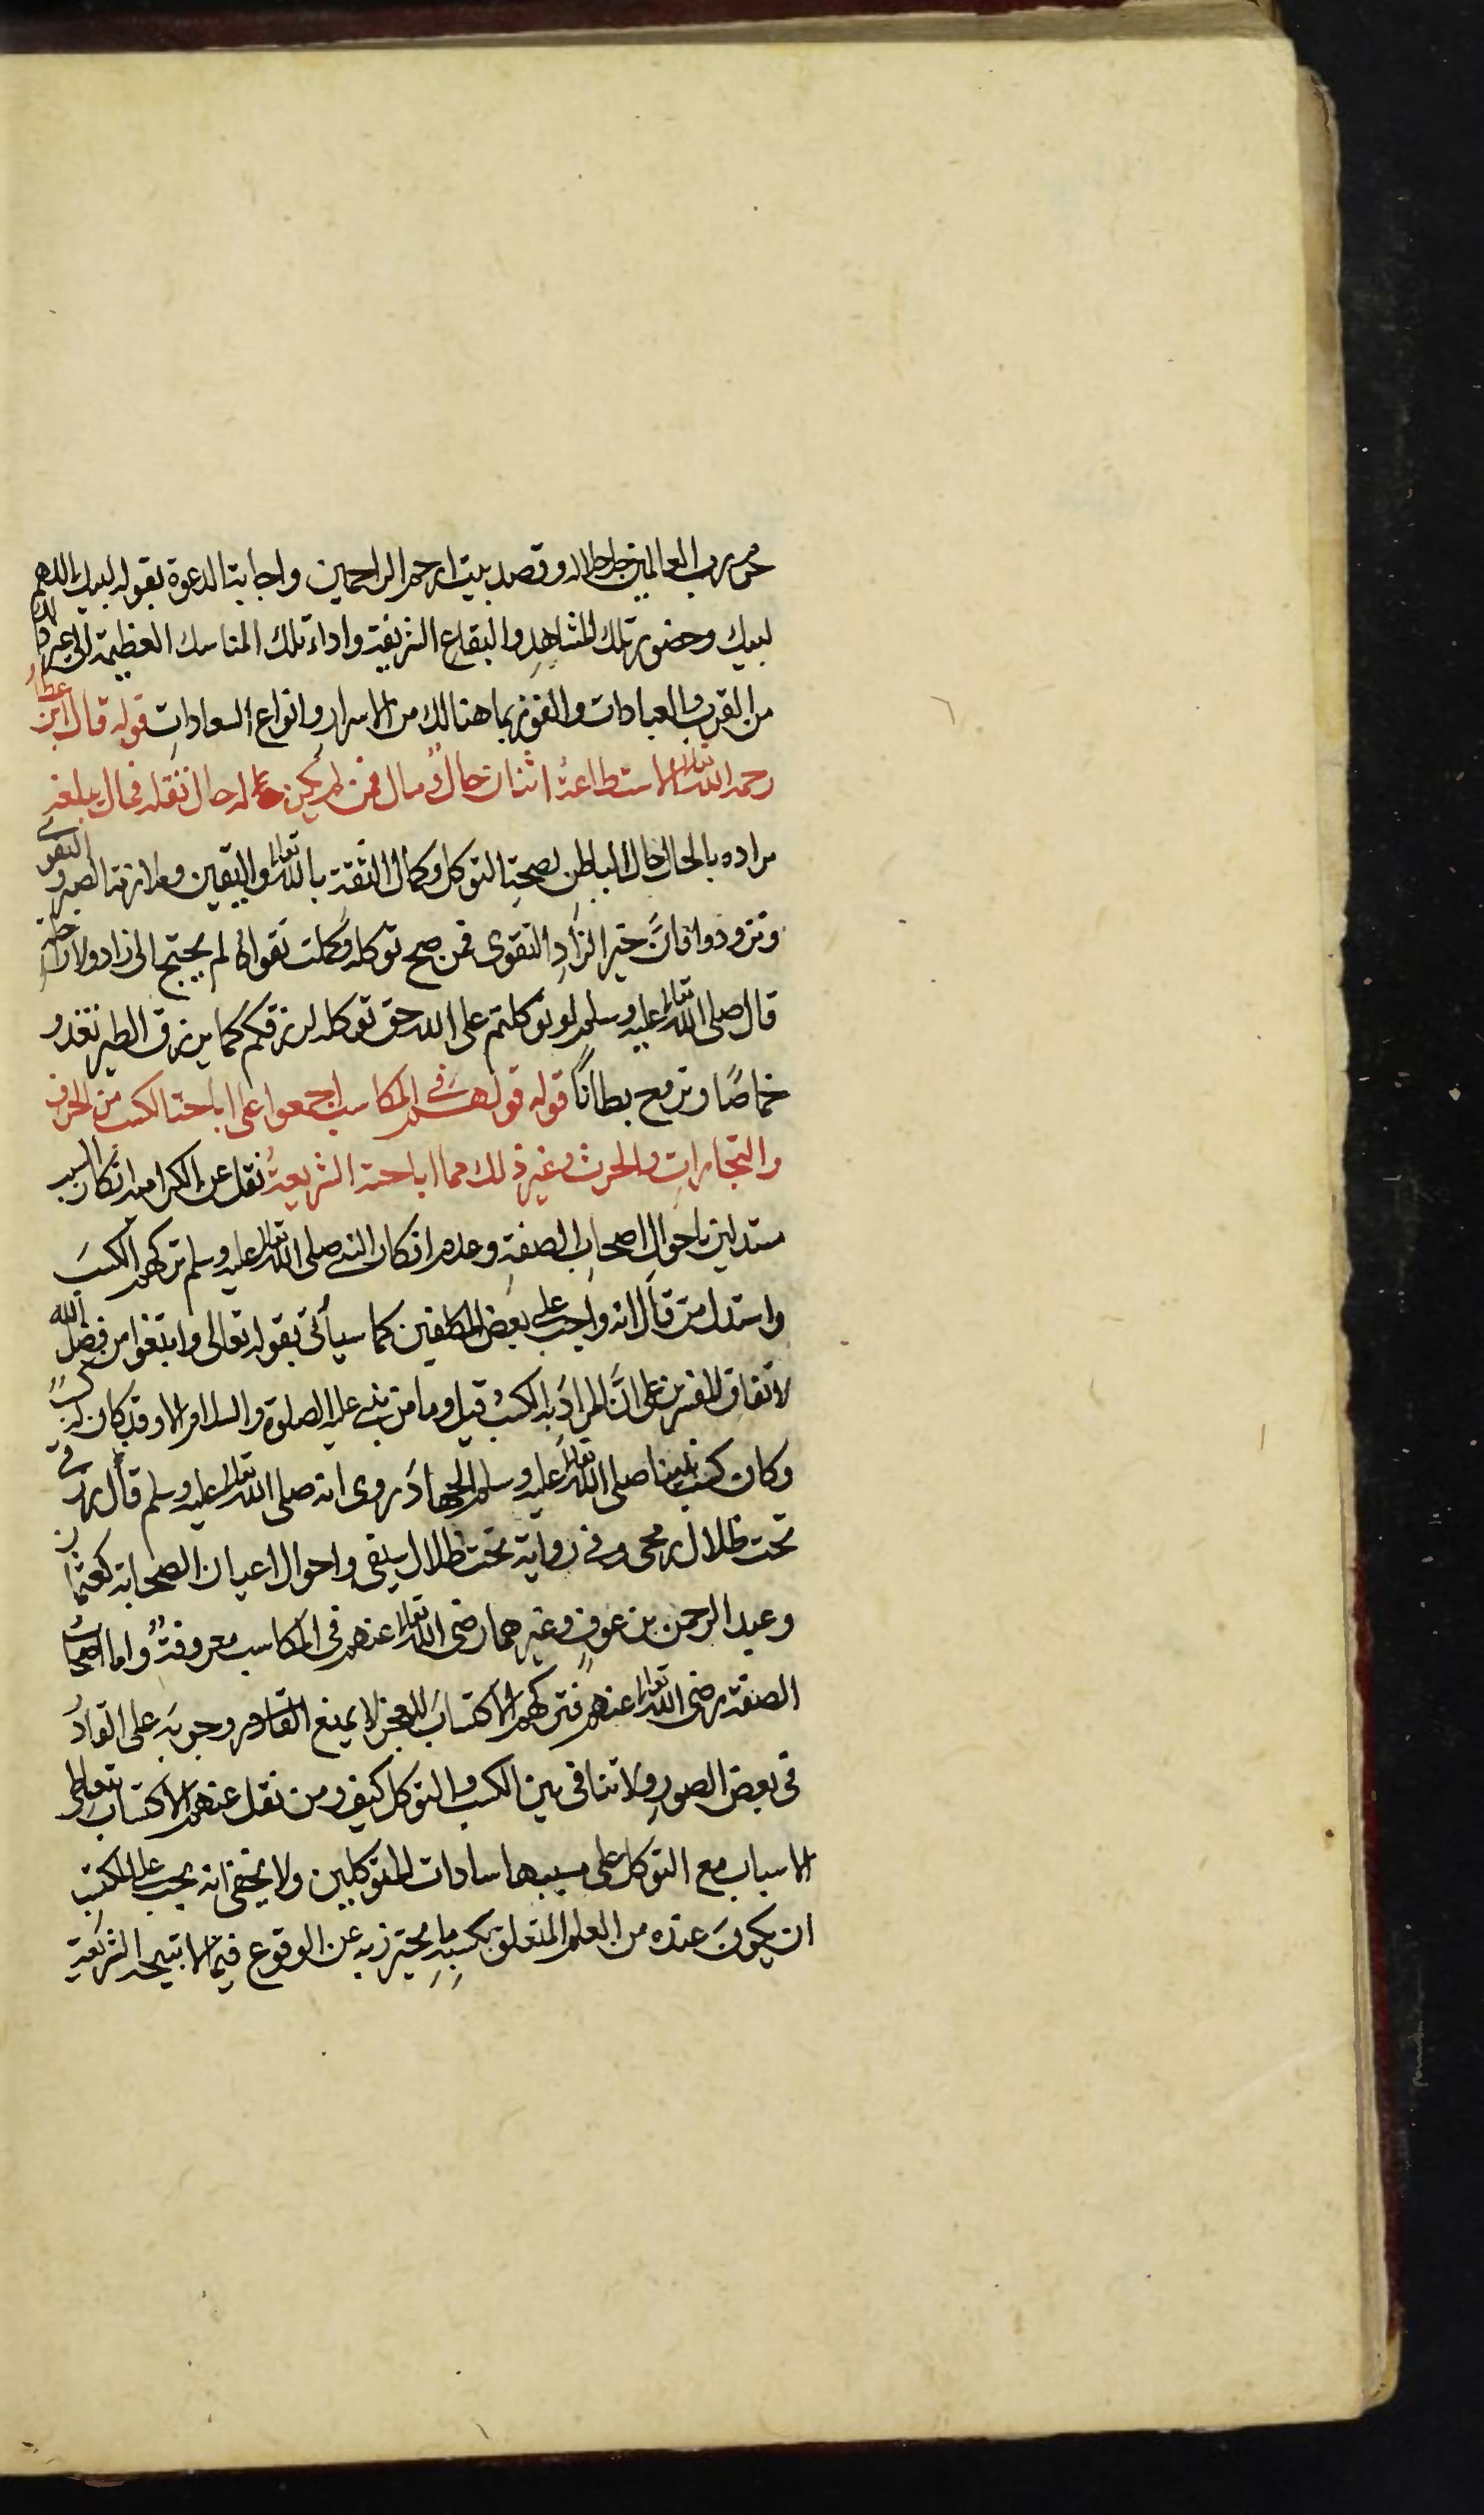 حرم رب العالمين جل جلاله وقصد بيت ارحم الراحمين واجابة الدعوة بقوله لبيك اللهم
لبيك وحضور تلك المشاهدِ والبقاع الشريفة واداء تلك المناسك العظيمة الى غير ذلك
من القرب والعبادات والفوز بما هنالك من الاسرارِ وانواع السعاداتِ قوله قال ابن عطاءٍ
رحمه الله تعالى الاستطاعةُ اثنان حالٌ ومال فمن لم يكن له حال تنقله فمال يبلغه
مراده بالحال حال الباطن لصحةِ التوكل وكمال الثقة بالله تعالى واليقين وملازمة الصبر والتقوى
وتزودوا فانَّ خير الزادِ التقوى فمن صح توكله وكملت تقواه لم يحتج الى زاد ولا راحلة
قال صلى الله تعالى عليه وسلم لو توكلتم على الله حق توكله لرزقكم كما يرزق الطير تغدو
خماصًا وتروح بطانًا قوله قولهم في المكاسب اجمعوا على اباحة الكسب من الحرف
والتجاراتِ والحرث وغير ذلك مما اباحته الشريعةُ نقل عن الكرامية انكار السبب
مستدلين باحوال اصحاب الصفةِ وعدم انكار النبي صلى الله تعالى عليه وسلم تركهم الكسبَ
واستدل من قال انه واجب على بعض المكلفين كما سيأتى بقوله تعالى وابتغوا من فضل الله
لاتفاق المفسرين على انَّ المرادَ به الكسبُ قيل وما من نبي عليه الصلوة والسلام الا وقد كان له كسبٌ
وكان كسب نبينا صلى الله تعالى عليه وسلم الجهادَ روى انه صلى الله تعالى عليه وسلم قال رزقى
تحت ظلال رمحى وفى رواية تحت ظلال سيفى واحوال اعيان الصحابة كعثمان
وعبد الرحمن بن عوفٍ وغيرهما رضى الله تعالى عنهم فى المكاسب معروفةٌ واما اصحابُ
الصفة رضى الله تعالى عنهم فتركهم الاكتسابَ للعجز لا يمنع القادر وجوبَه على القادرِ
فى بعض الصورِ ولا تنافى بين الكسب والتوكل كيف ومن نقل عنهم الاكتساب بتعاطى
الاسباب مع التوكل على مسببها سادات المتوكلين ولا يخفى انه يجب على المكتسب
ان يكونَ عنده من العلم المتعلق بكسبِهِ ما يحترز به عن الوقوع فيما لا تبيحه الشريعة